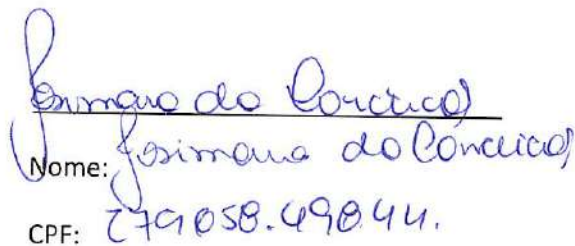 Josimara da Conceição
Nome: Josimara da Conceição
CPF: 279058.498.44.